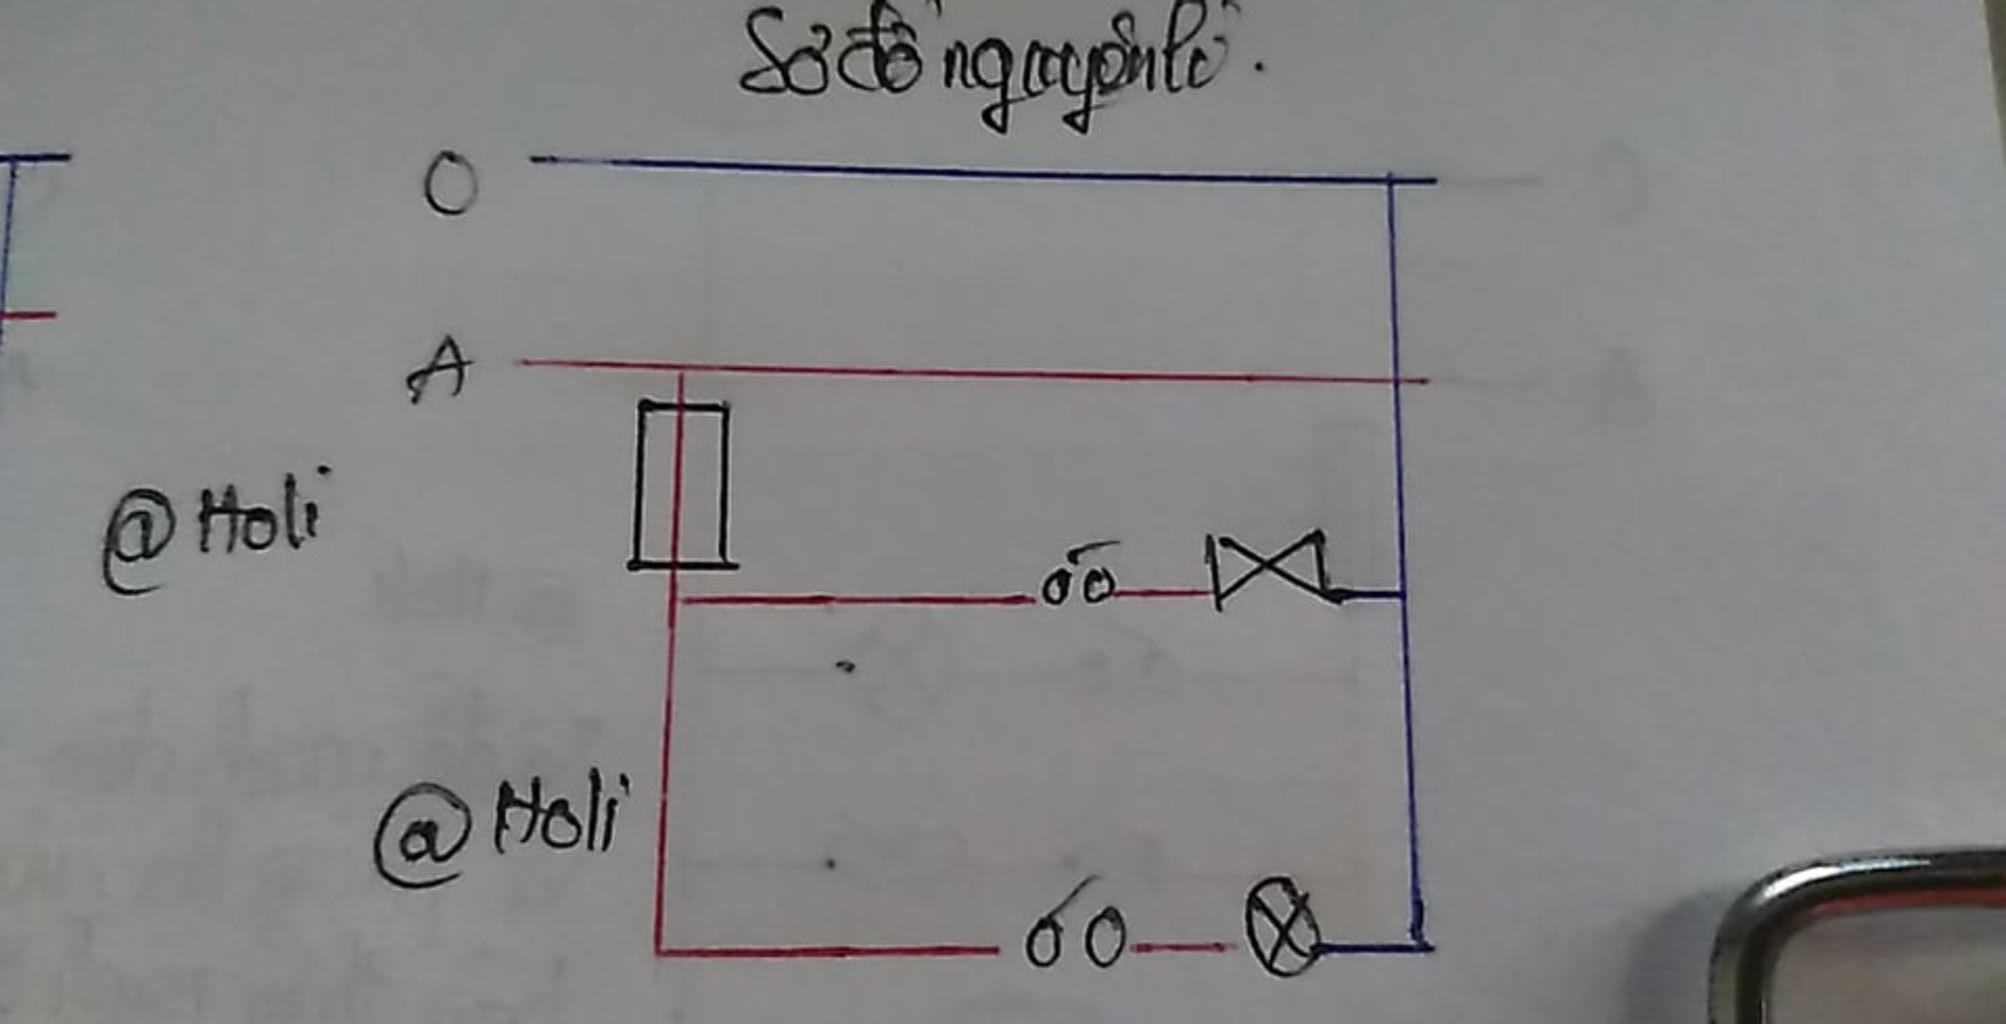 Sơ đồ nguyên lí.
O
A
@Holi
@Holi